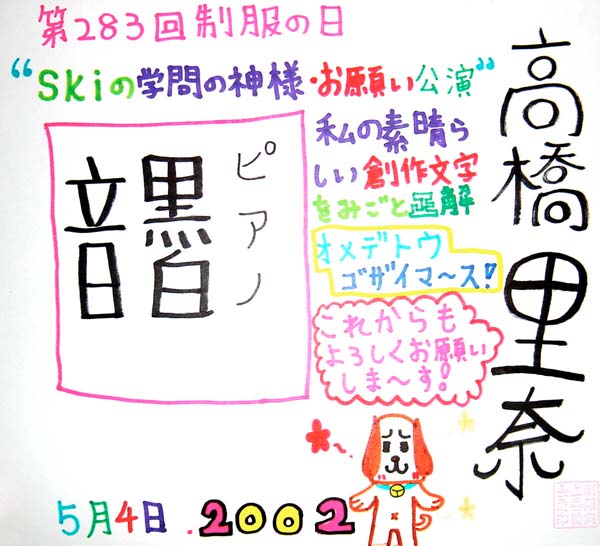 第283回制服の日
“Skiの学問の神様・お願い公演”
高橋里奈
ピアノ
音黒白
私の素晴ら
しい創作文字
をみごと正解
オメデトウ
ゴザイマ〜ス!
これからも
よろしくお願い
しま〜す!
5月4日.2002